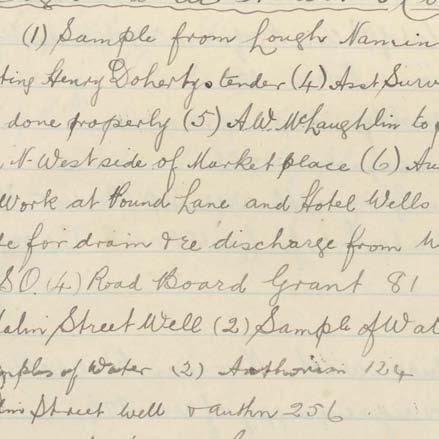 (1) Sample from Lough Namin
ting Henry Doherty's tender (4) Asst Surv
done properly (5) A.W. McLaughlin to
N-West side of Market place (6) Au
Work at Pound Lane and Hotel Wells
for drain &c discharge from
S.O. (4) Road Board Grant 81
alin Street Well (2) Sample of Wat
mples of Water (2) Authorisn 124
lin Street well & authn 256